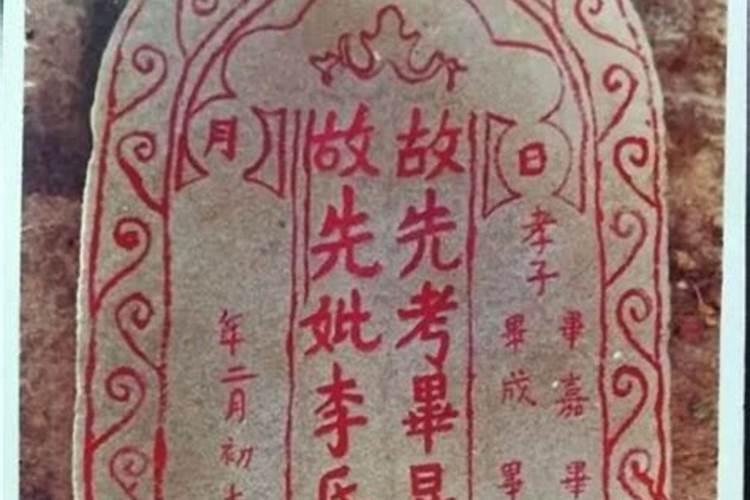 日
孝子
畢嘉 畢
畢成 畢
故先考畢
故先妣李氏
月
年二月初